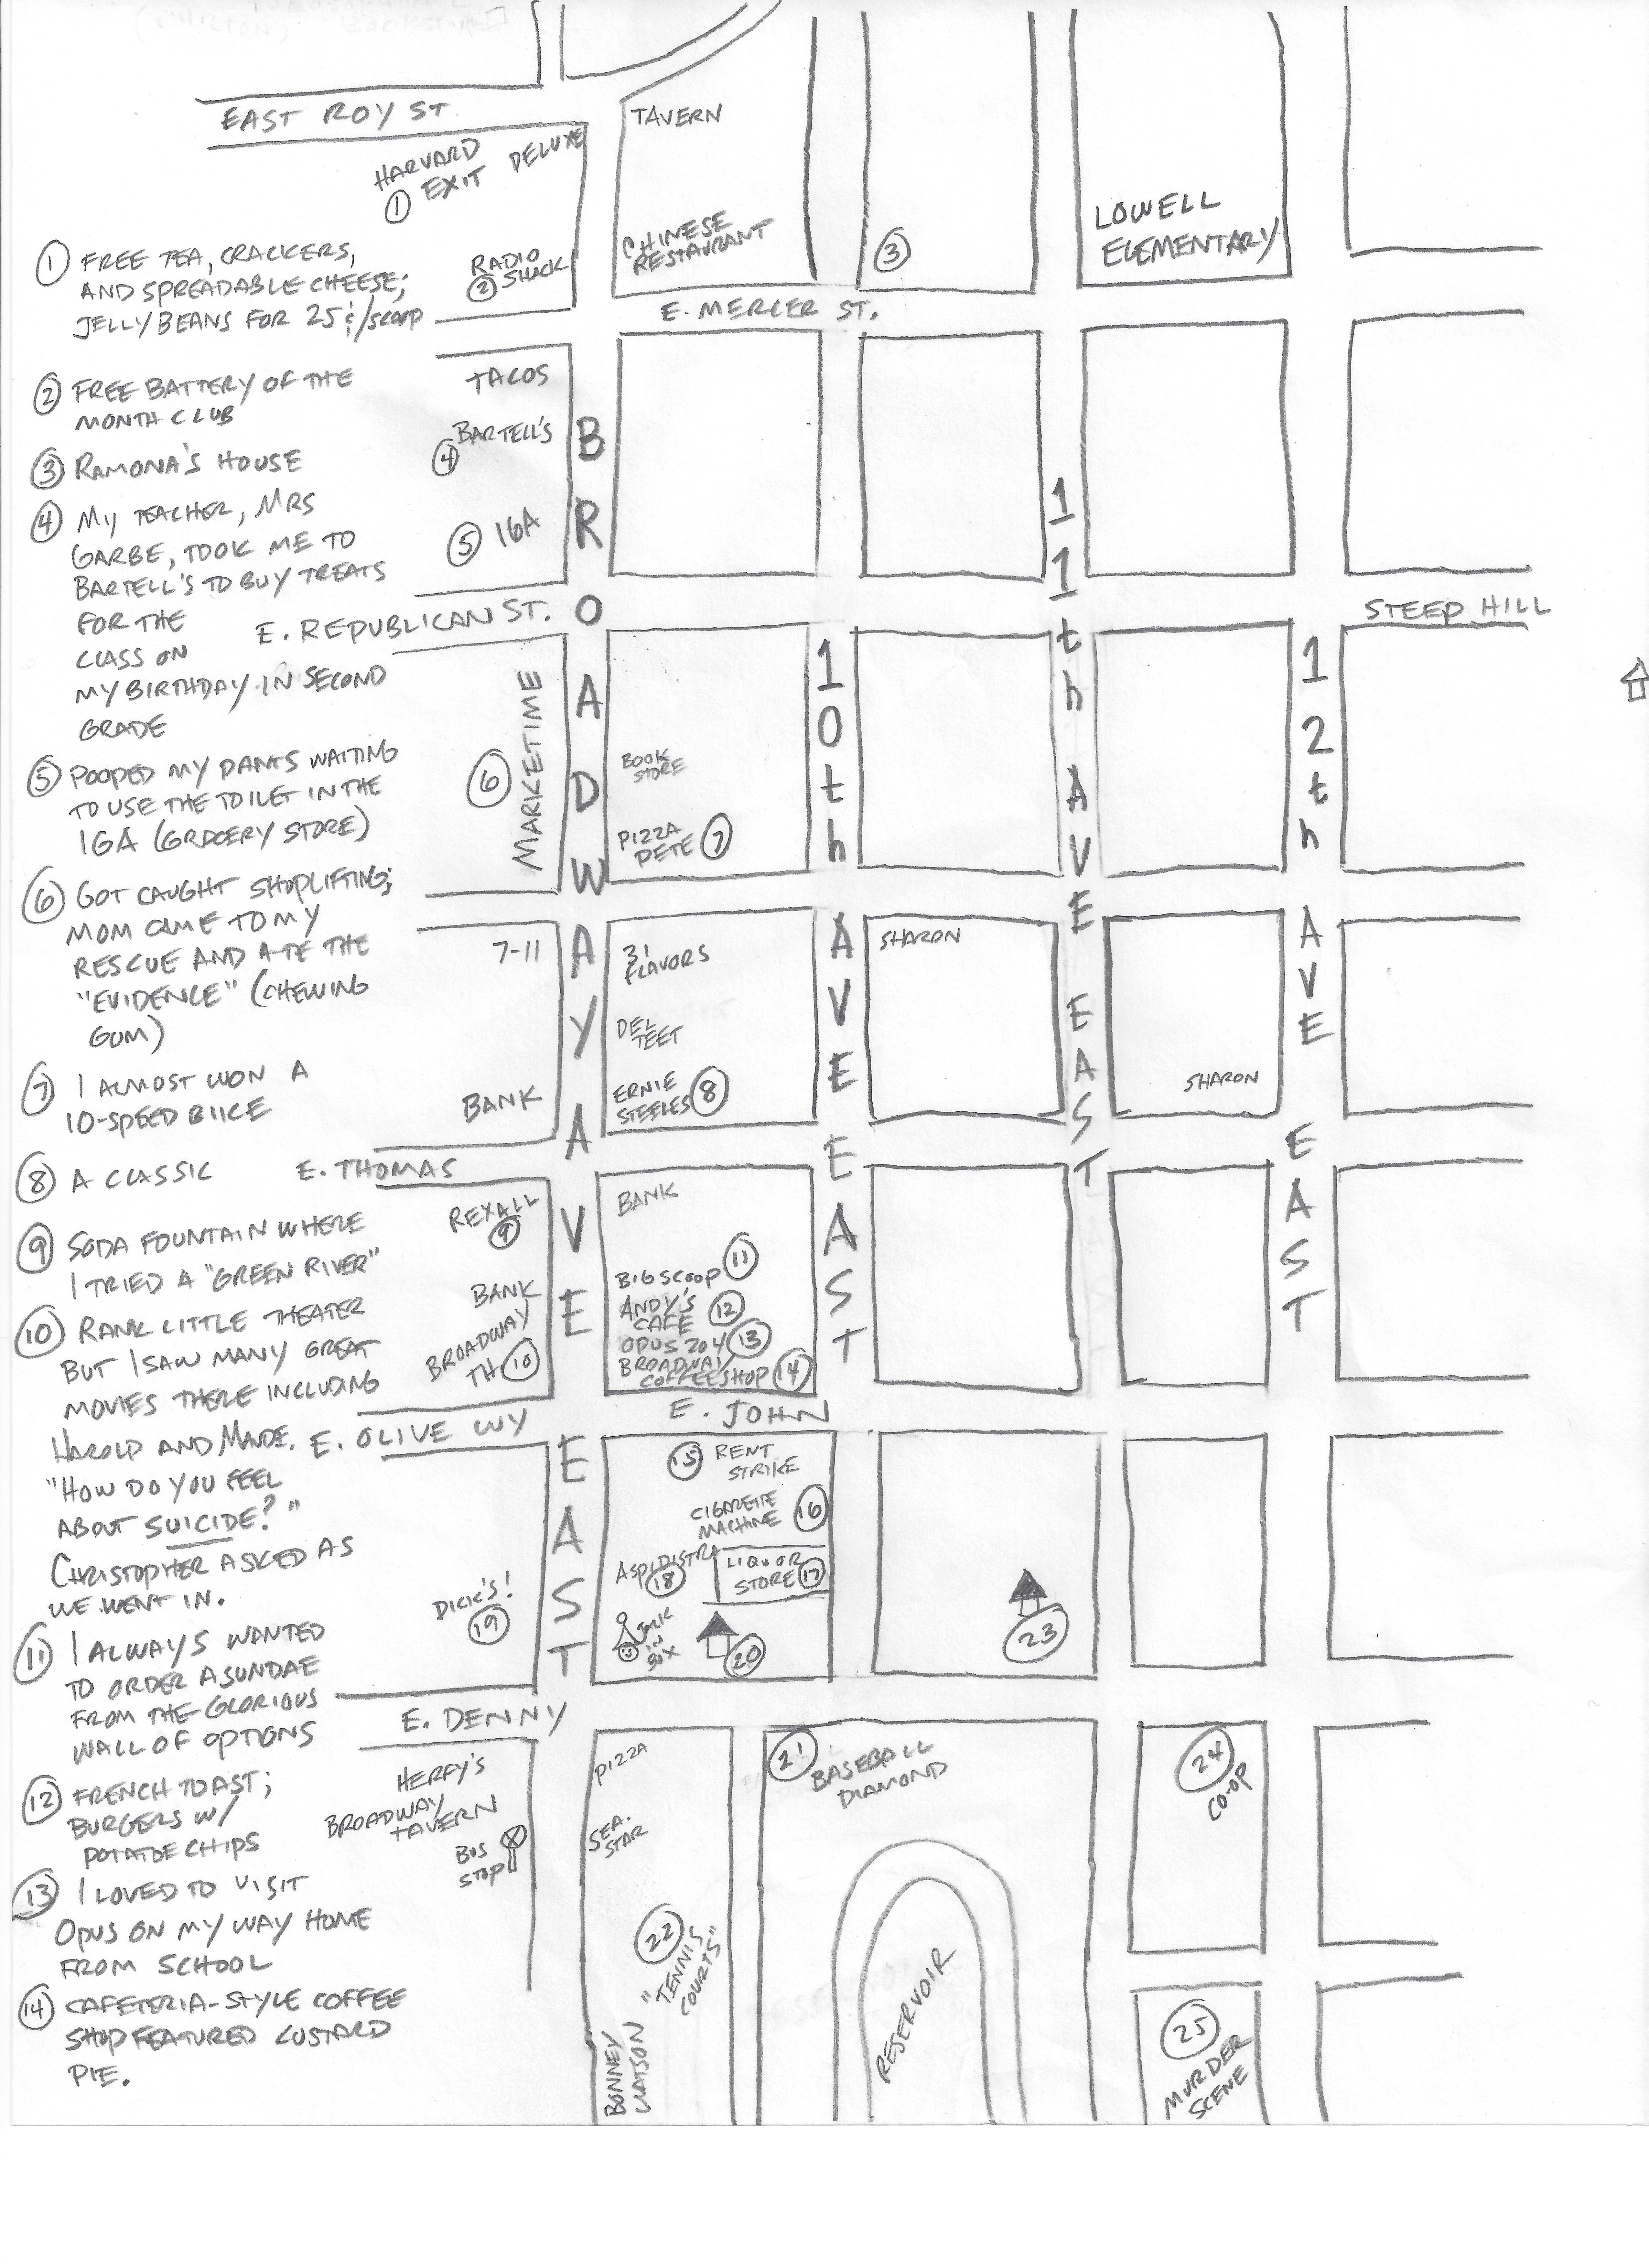 EAST ROY ST.
TAVERN
HARVARD
① EXIT DELUXE
LOWELL
ELEMENTARY
CHINESE
RESTAURANT
③
RADIO
② SHACK
E. MERCER ST.
① FREE TEA, CRACKERS,
AND SPREADABLE CHEESE;
JELLY BEANS FOR 25¢/SCOOP
② FREE BATTERY OF THE
MONTH CLUB
③ RAMONA'S HOUSE
④ MY TEACHER, MRS
GARBE, TOOK ME TO
BARTELL'S TO BUY TREATS
FOR THE
CLASS ON
MY BIRTHDAY IN SECOND
GRADE
⑤ POOPED MY PANTS WAITING
TO USE THE TOILET IN THE
IGA (GROCERY STORE)
⑥ GOT CAUGHT SHOPLIFTING;
MOM CAME TO MY
RESCUE AND ATE THE
"EVIDENCE" (CHEWING
GUM)
⑦ I ALMOST WON A
10-SPEED BIKE
⑧ A CLASSIC
⑨ SODA FOUNTAIN WHERE
I TRIED A "GREEN RIVER"
⑩ RANK LITTLE THEATER
BUT I SAW MANY GREAT
MOVIES THERE INCLUDING
HAROLD AND MAUDE.
"HOW DO YOU FEEL
ABOUT SUICIDE?"
CHRISTOPHER ASKED AS
WE WENT IN.
⑪ I ALWAYS WANTED
TO ORDER A SUNDAE
FROM THE GLORIOUS
WALL OF OPTIONS
⑫ FRENCH TOAST;
BURGERS W/
POTATOE CHIPS
⑬ I LOVED TO VISIT
OPUS ON MY WAY HOME
FROM SCHOOL
⑭ CAFETERIA-STYLE COFFEE
SHOP FEATURED CUSTARD
PIE.
TACOS
BARTELL'S
④
⑤ IGA
E. REPUBLICAN ST.
STEEP HILL
BROADWAY AVE EAST
10th AVE EAST
11th AVE EAST
12th AVE EAST
MARKETIME
⑥
BOOK
STORE
PIZZA
PETE ⑦
7-11
31
FLAVORS
SHARON
DEL
TEET
ERNIE
STEELES ⑧
SHARON
BANK
E. THOMAS
REXALL
⑨
BANK
BANK
BROADWAY
TH ⑩
BIG SCOOP ⑪
ANDY'S
CAFE ⑫
OPUS 204 ⑬
BROADWAY
COFFEE SHOP ⑭
E. OLIVE WY
E. JOHN
⑮ RENT
STRIKE
CIGARETTE
MACHINE ⑯
ASPIDISTRA
⑱
LIQUOR
STORE ⑰
DICK'S!
⑲
JACK
IN
BOX
⑳
㉓
E. DENNY
HERFY'S
BROADWAY
TAVERN
BUS
STOP
PIZZA
SEA.
STAR
㉑ BASEBALL
DIAMOND
㉔
CO-OP
㉒
"TENNIS
COURTS"
RESERVOIR
BONNEY
WATSON
㉕
MURDER
SCENE